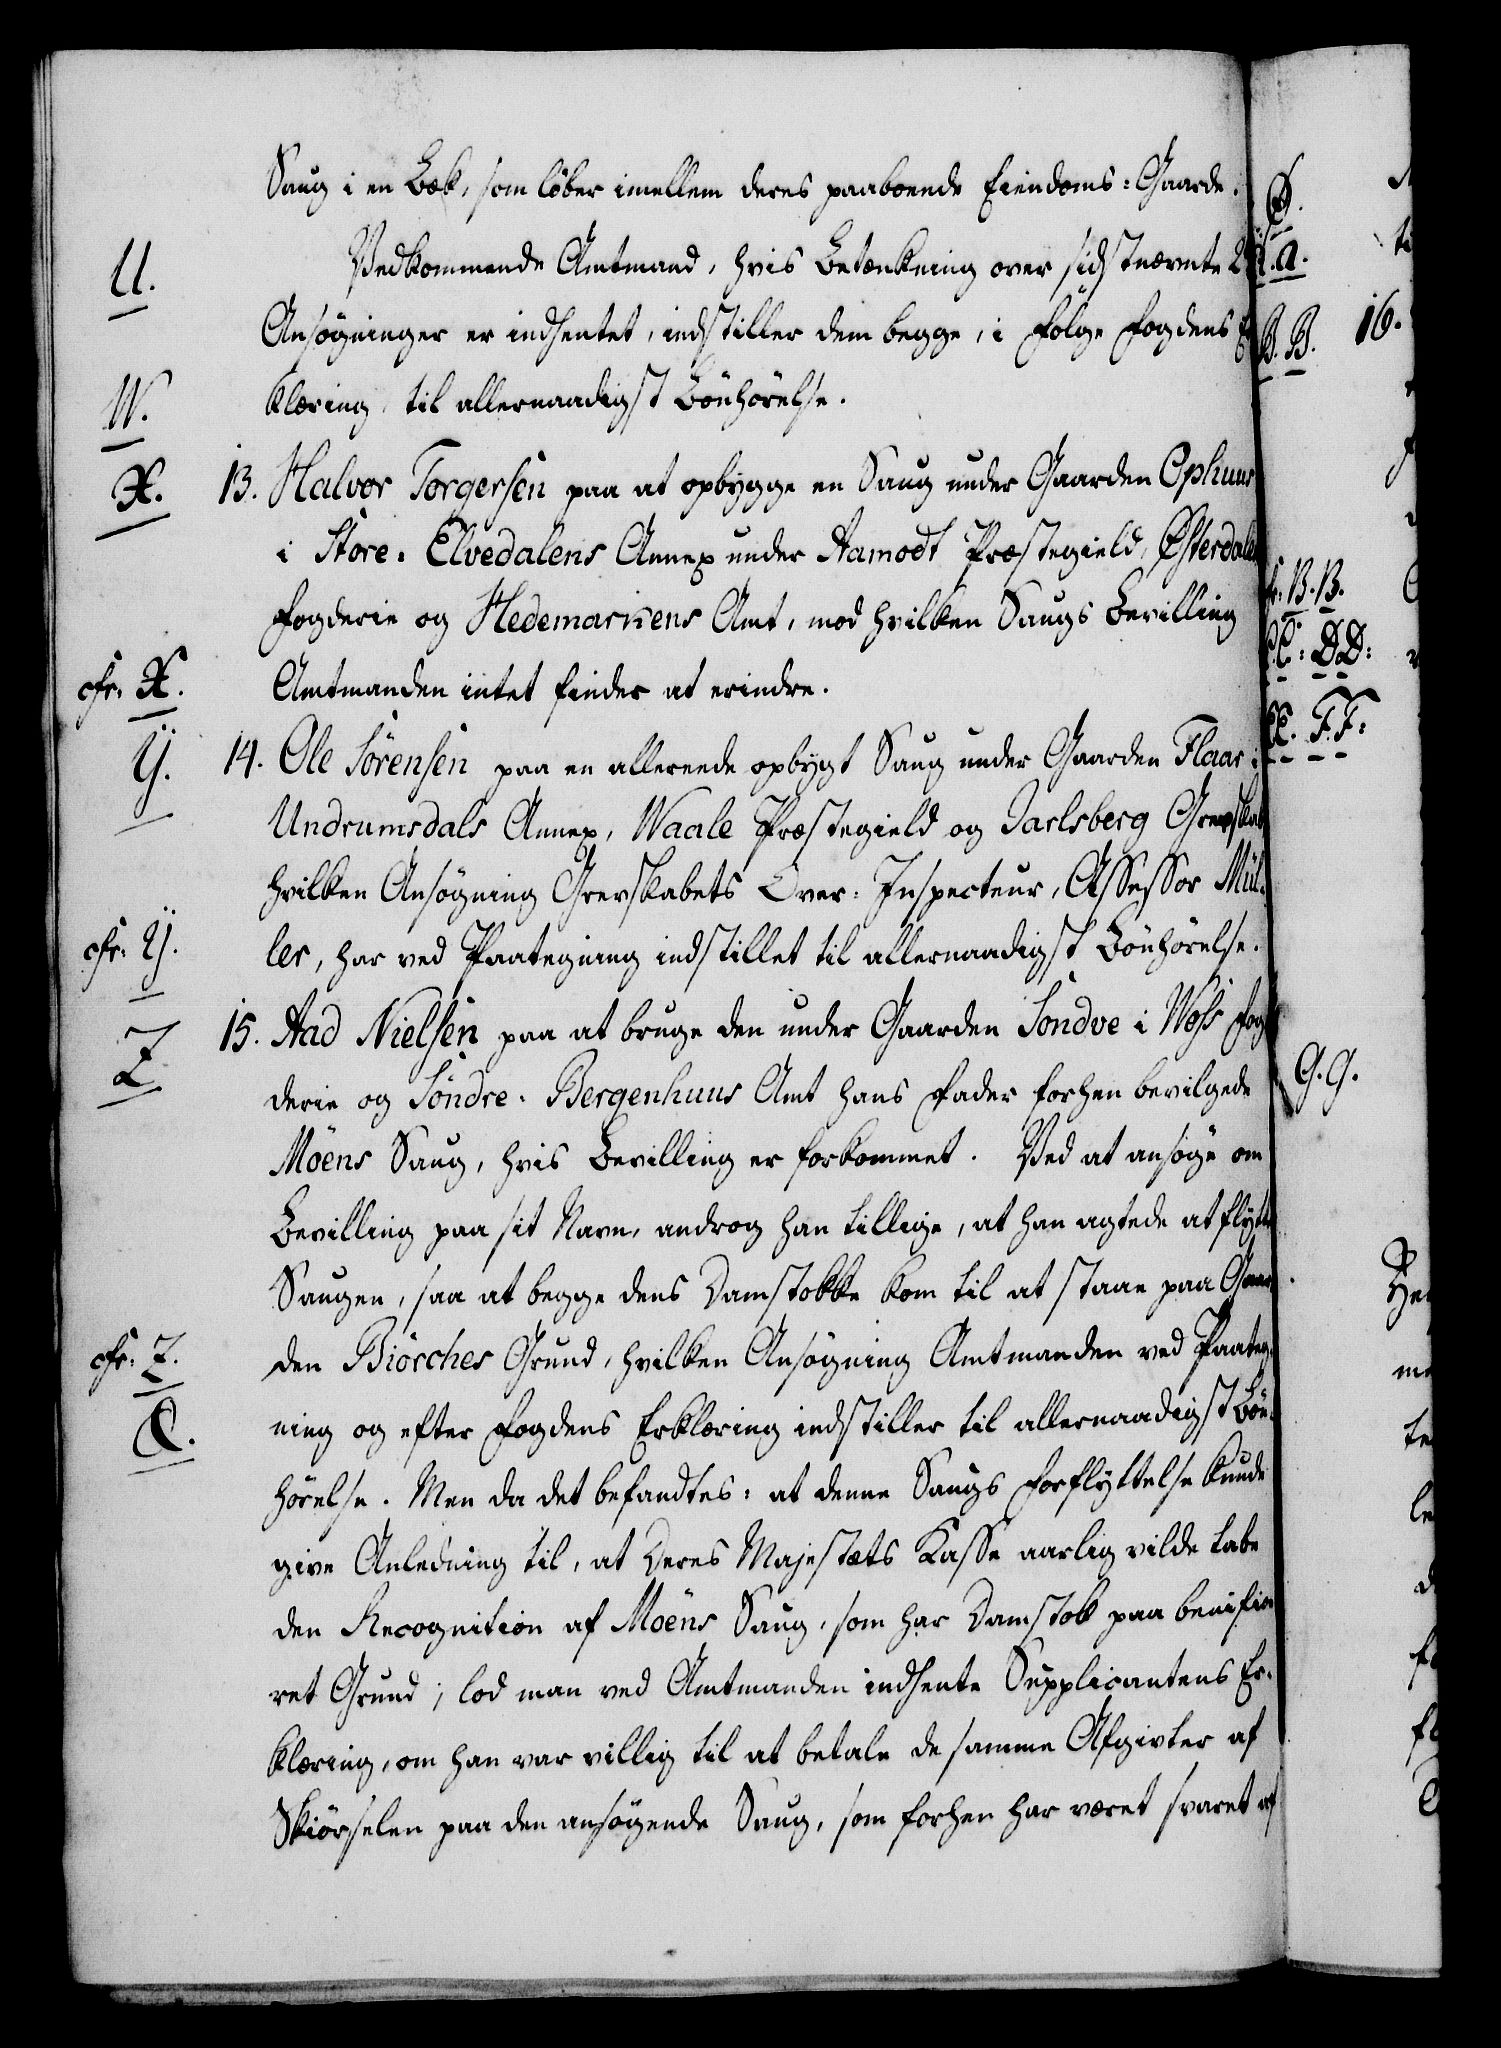 Saug i en Bæk, som løber imellem deres paaboende Eiendoms-Gaarde.
U. Vedkommende Amtmand, hvis Betænkning over sidstnævnte 2
Ansøgninger er indhentet, indstiller dem begge, i følge Fogdens Er
W. klæring, til allernaadigst Bönhörelse.
X. 13. Halvor Torgersen paa at opbygge en Saug under Gaarden Ophuus
i Store-Elvedalens Annex under Aamodt Præstegield, Østerdalen
Fogderie og Hedemarkens Amt, mod hvilken Saugs Bevilling
cfr. X. Amtmanden intet finder at erindre.
Y. 14. Ole Sörensen paa en allereede opbygt Saug under Gaarden Flaar i
Undrumsdals Annex, Waale Præstegield og Jarlsberg Grevskab
hvilken Ansøgning Grevskabets Over-Inspecteur, Assessor Mül-
cfr. Y. ler, har ved Paategning indstillet til allernaadigst Bönhörelse.
Z 15. Aad Nielsen paa at bruge den under Gaarden Söndve i Woss Fog
derie og Söndre-Bergenhuus Amt hans Fader forhen bevilgede
Möens Saug, hvis Bevilling er forkommet. Ved at ansöge om
Bevilling paa sit Navn, androg han tillige, at han agtede at flytte
Saugen, saa at begge dens Damstokke kom til at staae paa Gaar
cfr. Z. den Biörches Grund, hvilken Ansögning Amtmanden ved Paateg-
Æ. ning og efter Fogdens Erklæring indstiller til allernaadigst Bön-
hörelse. Men da det befandtes: at denne Saugs Forflyttelse kunde
give Anledning til, at Deres Majestæts Kasse aarlig vilde tabe
den Recognition af Möens Saug, som har Damstok paa benificee
ret Grund; lod man ved Amtmanden indhente Supplicantens Er-
klæring, om han var villig til at betale de samme Afgivter af
Skiörselen paa den ansögende Saug, som forhen har været svaret af
Ø.
A.A.
B.B. 16.
cfr. B.B.
C.C. D.D.
E.E. F.F.
G.G.